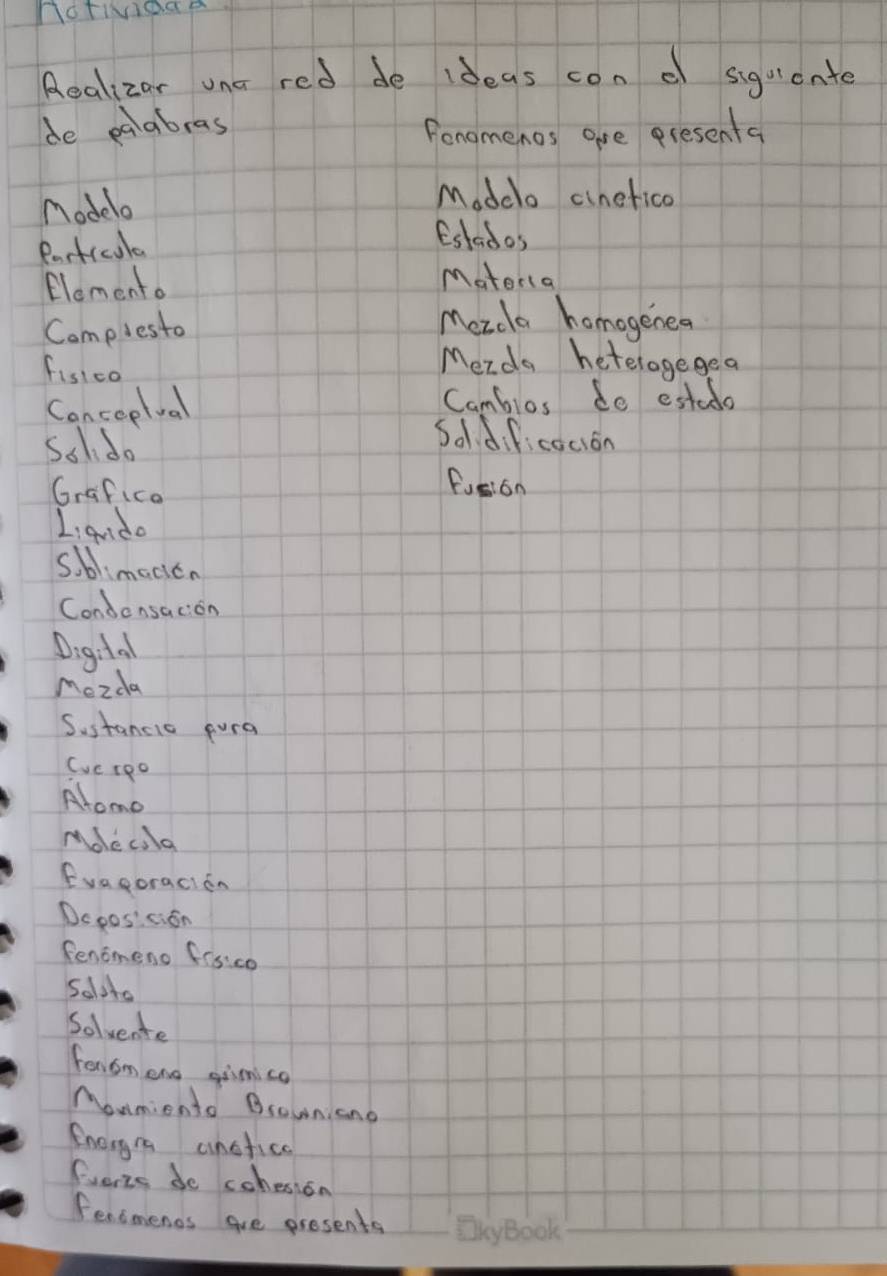 Actividad
Realizar una red de ideas con el siguiente
de palabras
Modelo
Particula
Elemento
Compuesto
fisico
Conceptual
Solido
Grafico
Liquido
Sublimación
Condensación
Digital
Mezcla
Sustancia pura
Cuerpo
Atomo
Molécula
Evaporación
Deposición
fenómeno físico
Soluto
Solvente
fenómeno químico
Movimiento Browniano
Energia cinetica
fuerza de cohesión
fenómenos que presenta
fenomenos que presenta
Modelo cinetico
Estados
Materia
Mezcla homogénea
Mezcla heterogegea
Cambios de estado
Solidificación
fusión
SkyBook